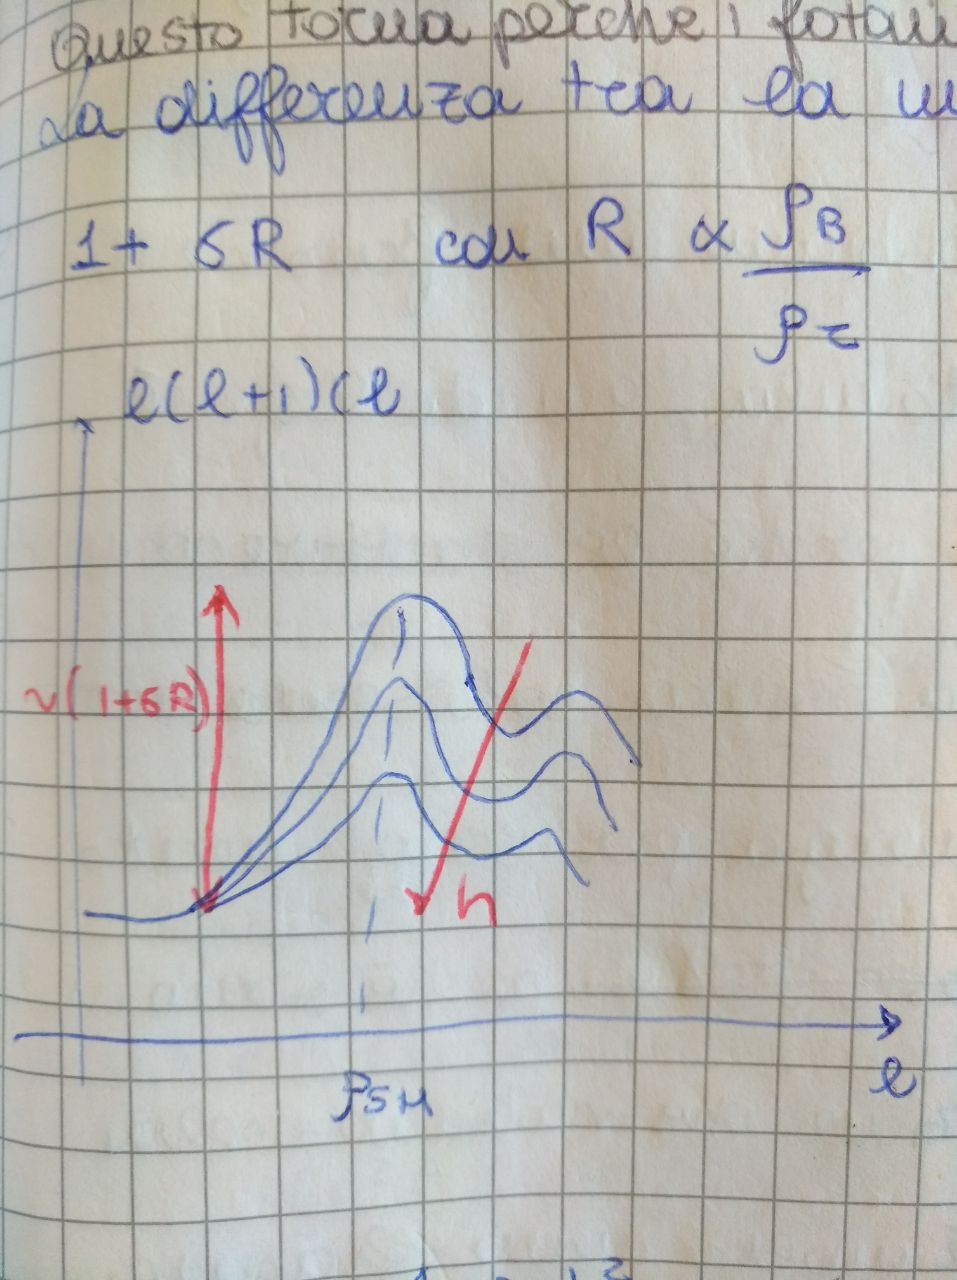 Questo torna perche i fotoni
La differenza tra la
1 + 6R con R ∝ ρB / ρr
l(l+1)Cl
~(1+6R)
h
l
ρSH